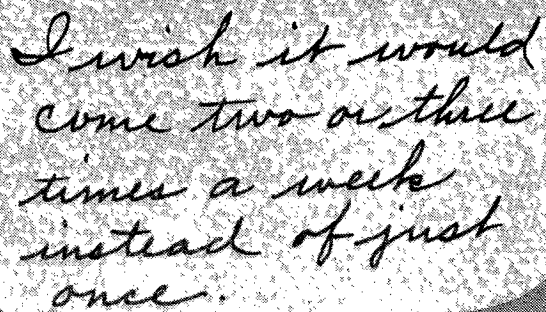 I wish it would
come two or three
times a week
instead of just
once.